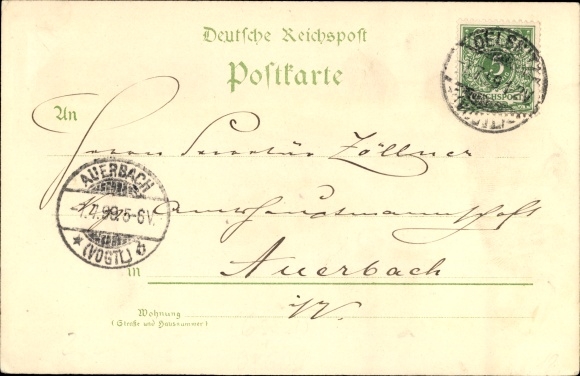 Deutsche Reichspost
Postkarte
5
REICHSPOST
An
Herrn Secretär Zöllner
Amtshauptmannschaft
AUERBACH
1.4.99.5-6V.
(VOGTL)
in Auerbach
i/V.
Wohnung
(Straße und Hausnummer)